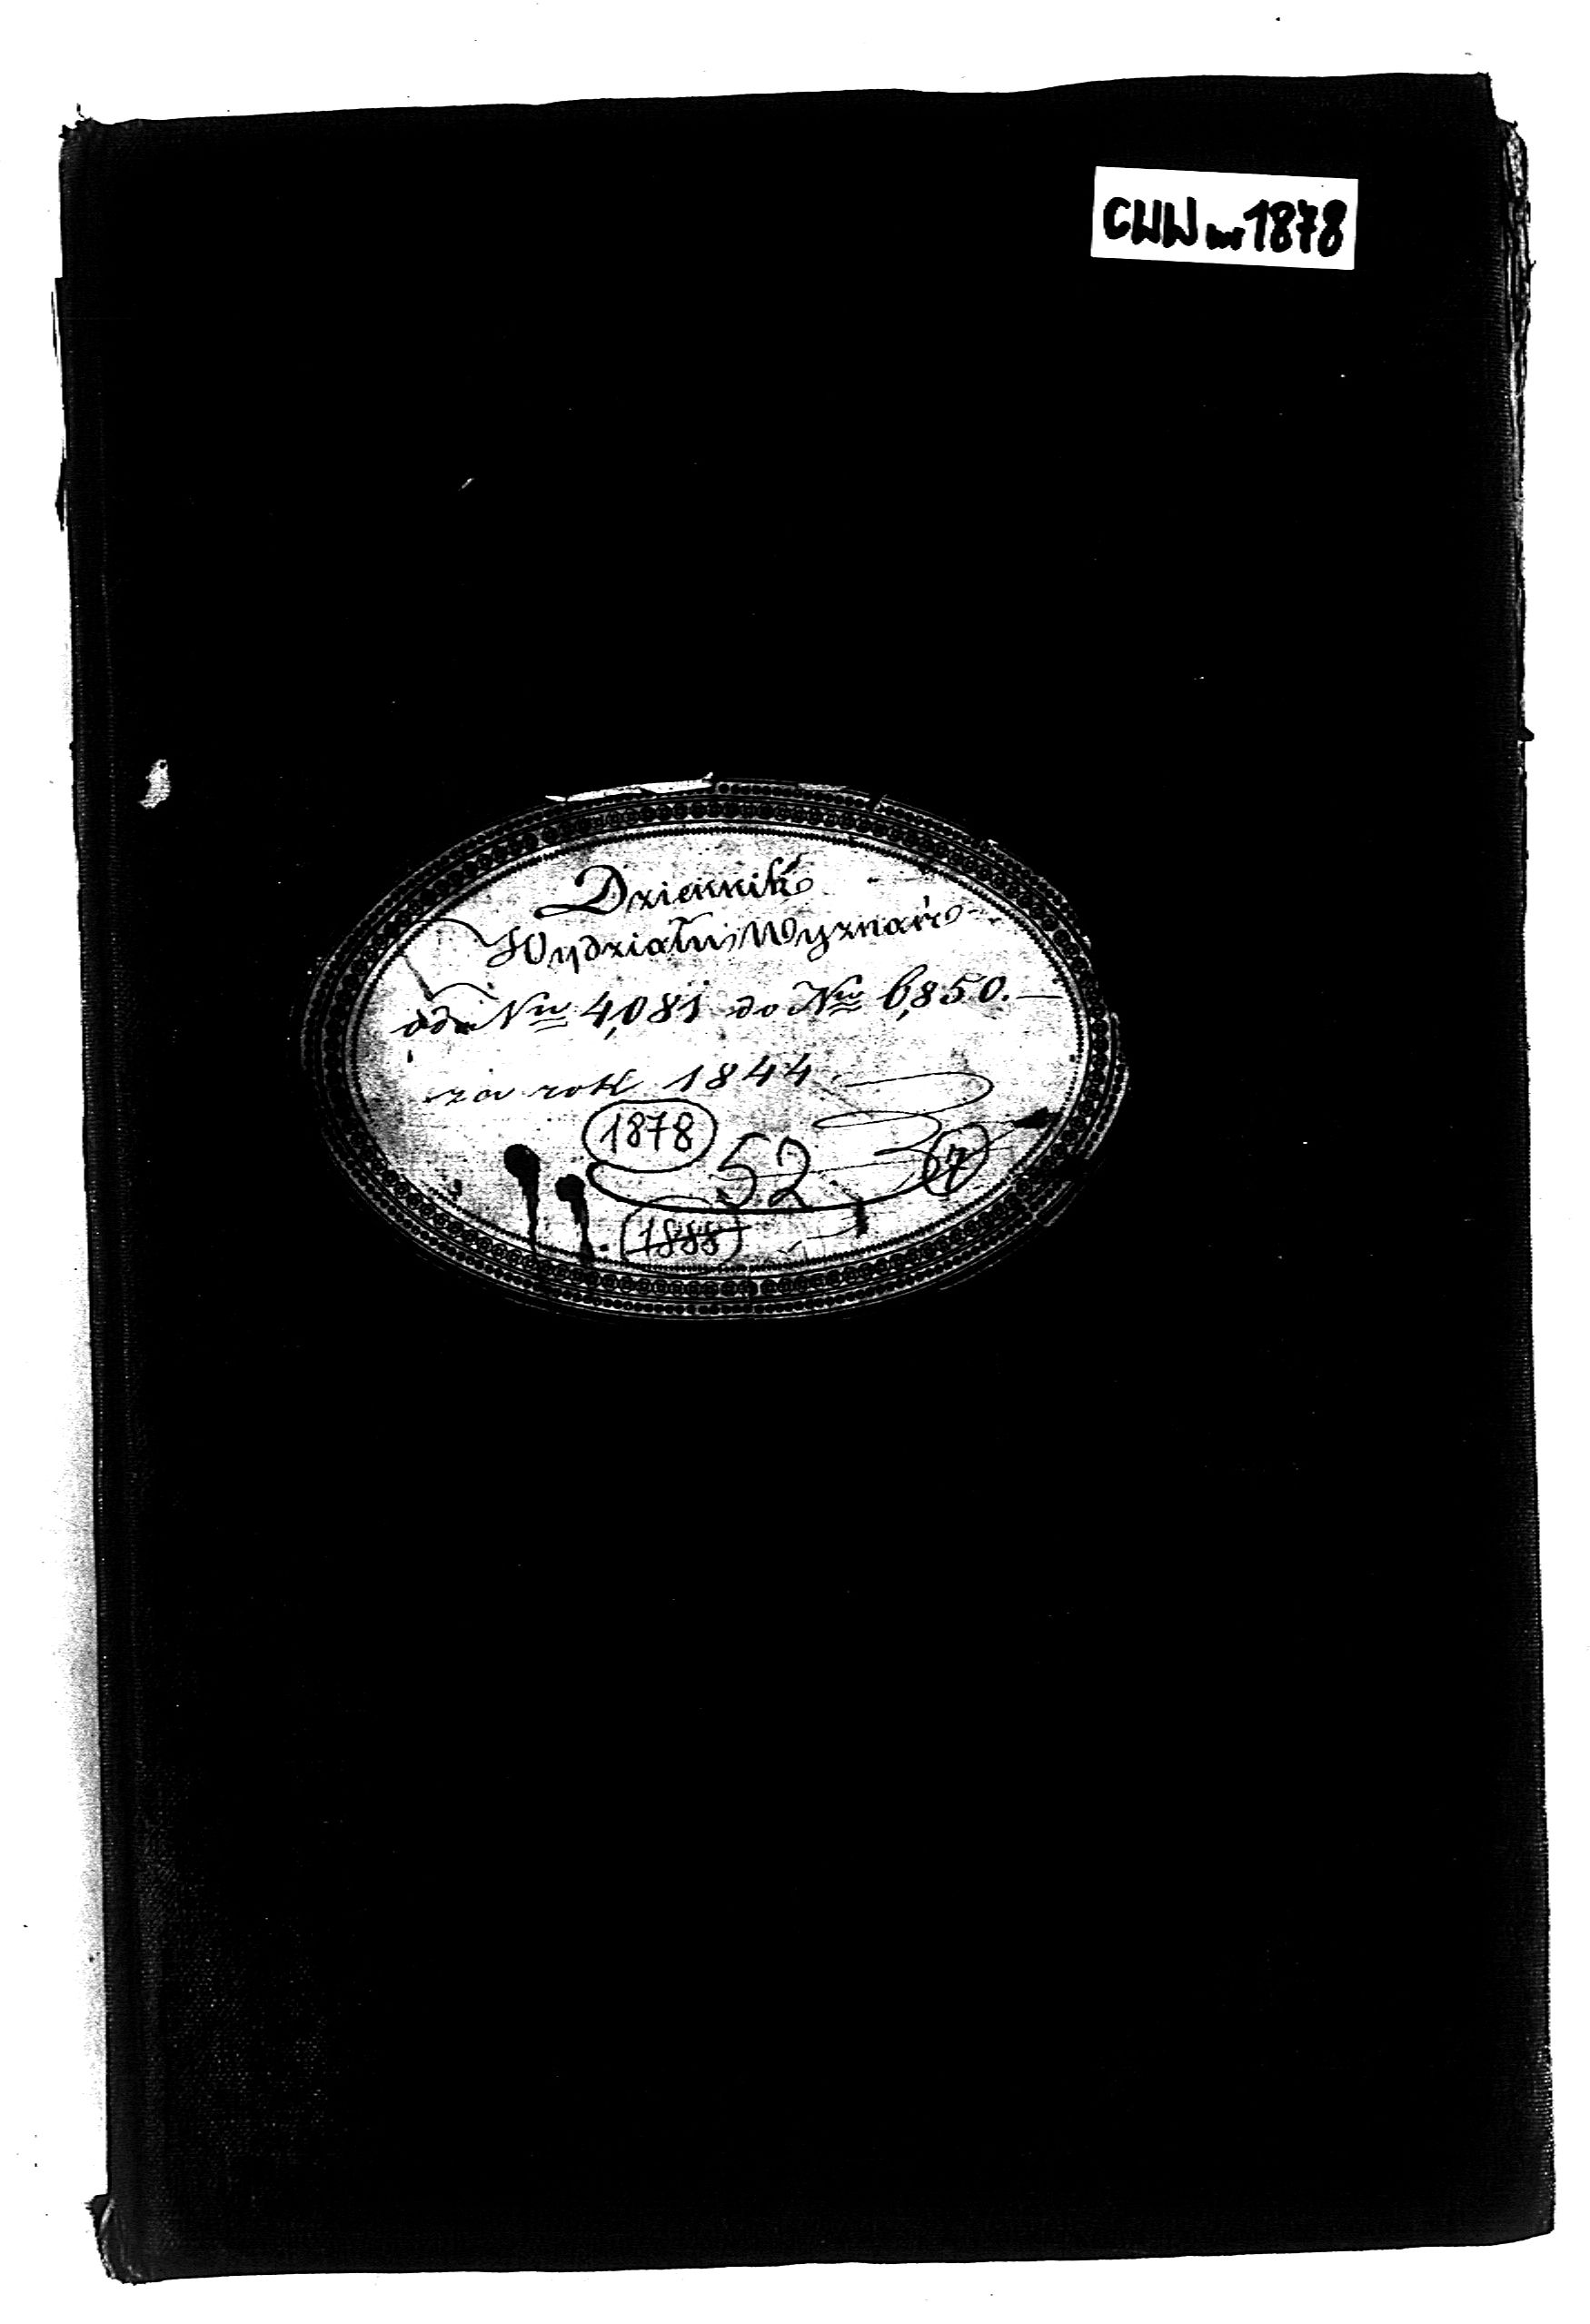 CWW nr 1878
Dziennik
Wydziału Wyznań
od Nru 4,081 do Nru 6,850.—
za rok 1844
1878
52
7
1888